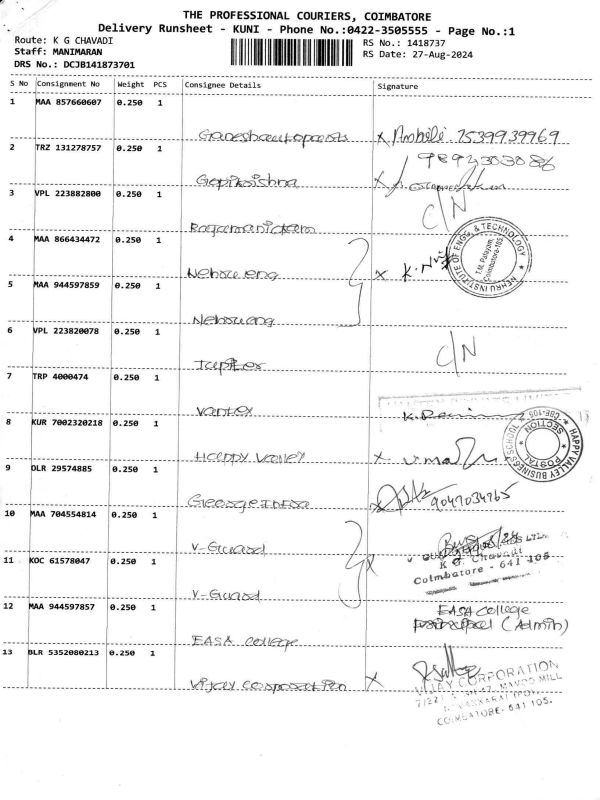 THE PROFESSIONAL COURIERS, COIMBATORE
Delivery Runsheet - KUNI - Phone No.:0422-3505555 - Page No.:1
Route: K G CHAVADI
RS No.: 1418737
Staff: MANIMARAN
RS Date: 27-Aug-2024
DRS No.: DCJB141873701
S No Consignment No Weight PCS Consignee Details Signature
1 MAA 857660607 0.250 1
Ganeshautoparts 7539939969
2 TRZ 131278757 0.250 1
9894303086
Gopikrishna
3 VPL 223882800 0.250 1
C/N
Ragamanickam
4 MAA 866434472 0.250 1
Nehru eng
NEHRU INSTITUTE OF ENGG. & TECHNOLOGY
T.M. Palayam,
Coimbatore-105.
5 MAA 944597859 0.250 1
Nehru eng
6 VPL 223820078 0.250 1
C/N
Jupiter
7 TRP 4000474 0.250 1
Vantex
8 KUR 7002320218 0.250 1
Happy valley
HAPPY VALLEY BUSINESS SCHOOL
CBE-105
POSTAL
SECTION
9 DLR 29574885 0.250 1
George India
10 MAA 704554814 0.250 1
V-Guard
11 KOC 61578047 0.250 1
K G. Chavadi
Coimbatore - 641 105
V-Guard
12 MAA 944597857 0.250 1
EASA College
principal (Admin)
EASA college
13 BLR 5352080213 0.250 1
Vijay corporation
VIJAY CORPORATION
COIMBATORE- 641 105.